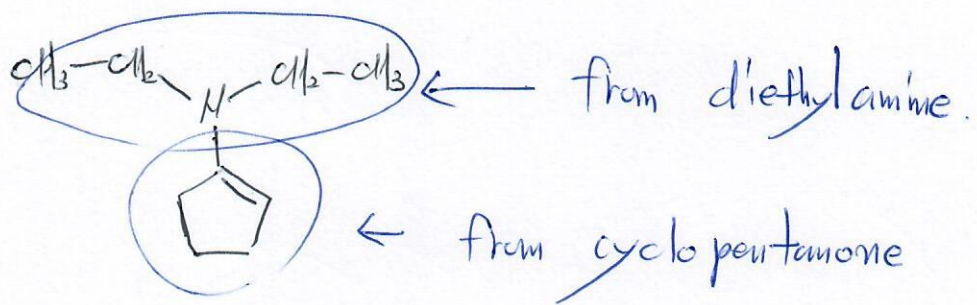 CH3-CH2 CH2-CH3 from diethylamine.
N
from cyclopentanone